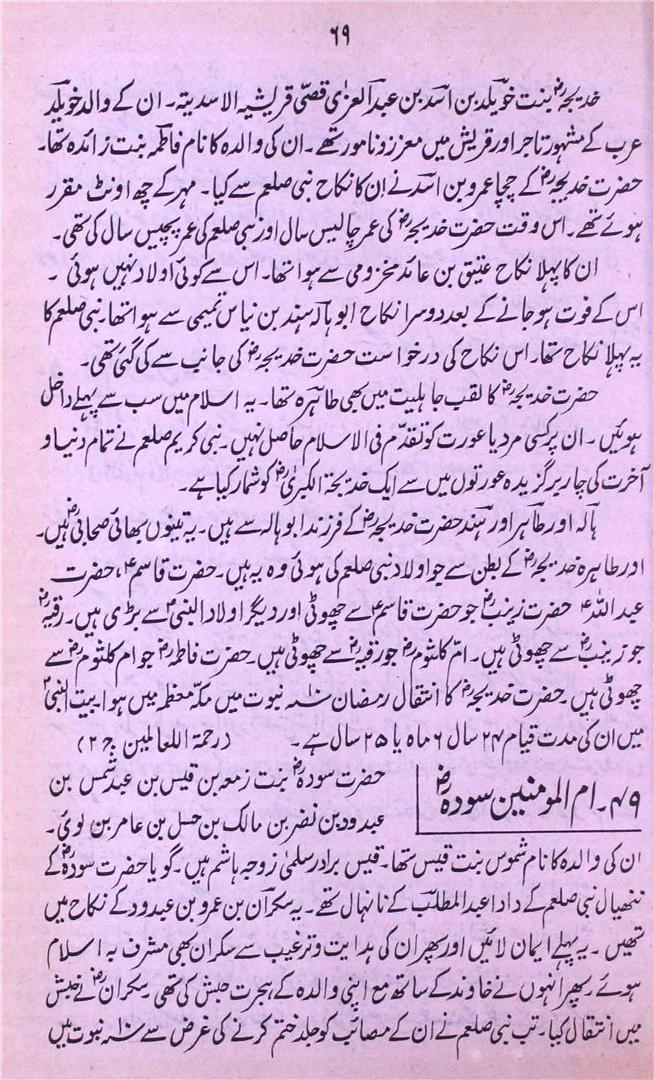 ۶۹
خدیجہؓ بنت خویلد بن اسد بن عبدالعزیٰ قصّی قریشیہ الاسدیتہ۔ ان کے والد خویلد
عرب کے مشہور تاجر اور قریش میں معزز و نامور تھے۔ ان کی والدہ کا نام فاطمہ بنت زائدہ تھا۔
حضرت خدیجہؓ کے چچا عمرو بن اسد نے ان کا نکاح نبی صلعم سے کیا۔ مہر کے چھ اونٹ مقرر
ہوئے تھے۔ اس وقت حضرت خدیجہؓ کی عمر چالیس سال اور نبی صلعم کی عمر پچیس سال کی تھی۔
ان کا پہلا نکاح عتیق بن عائد مخزومی سے ہوا تھا۔ اس سے کوئی اولاد نہیں ہوئی ۔
اس کے فوت ہو جانے کے بعد دوسرا نکاح ابوہالہ ہند بن نیاس تمیمی سے ہوا تھا۔ نبی صلعم کا
یہ پہلا نکاح تھا۔ اس نکاح کی درخواست حضرت خدیجہؓ کی جانب سے کی گئی تھی۔
حضرت خدیجہؓ کا لقب جاہلیت میں بھی طاہرہ تھا۔ یہ اسلام میں سب سے پہلے داخل
ہوئیں۔ ان پر کسی مرد یا عورت کو تقدّم فی الاسلام حاصل نہیں۔ نبی کریم صلعم نے تمام دنیا و
آخرت کی چار برگزیدہ عورتوں میں سے ایک خدیجۃ الکبریٰؓ کو شمار کیا ہے۔
ہالہ اور طاہر اور ہند حضرت خدیجہؓ کے فرزند ابوہالہ سے ہیں۔ یہ تینوں بھائی صحابیؓ ہیں۔
اور طاہرہ خدیجہؓ کے بطن سے جو اولاد نبی صلعم کی ہوئی وہ یہ ہیں۔ حضرت قاسمؑ، حضرت
عبداللہؑ حضرت زینبؓ جو حضرت قاسمؑ سے چھوٹی اور دیگر اولاد النبیؐ سے بڑی ہیں۔ رقیہؓ
جو زینبؓ سے چھوٹی ہیں۔ امّ کلثومؓ جو رقیہؓ سے چھوٹی ہیں۔ حضرت فاطمہؓ جو ام کلثومؓ سے
چھوٹی ہیں۔ حضرت خدیجہؓ کا انتقال رمضان ۱۰ سنہ نبوت میں مکہ معظمہ میں ہوا۔ بیت النبیؐ
میں ان کی مدت قیام ۲۴ سال ۶ ماہ یا ۲۵ سال ہے۔ (رحمۃ اللعالمین ج۲)
۴۹۔ ام المومنین سودہؓ
حضرت سودہؓ بنت زمعہ بن قیس بن عبدشمس بن
عبدود بن نضر بن مالک بن حسل بن عامر بن لوئ۔
ان کی والدہ کا نام شموس بنت قیس تھا۔ قیس برادر سلمیٰ زوجہ ہاشم ہیں۔ گویا حضرت سودہؓ کے
ننھیال نبی صلعم کے دادا عبدالمطلب کے نانہال تھے۔ یہ سکران بن عمرو بن عبدود کے نکاح میں
تھیں۔ یہ پہلے ایمان لائیں اور پھر ان کی ہدایت و ترغیب سے سکران بھی مشرف بہ اسلام
ہوئے۔ پھر انہوں نے خاوند کے ساتھ مع اپنی والدہ کے ہجرت حبش کی تھی۔ سکرانؓ نے حبش
میں انتقال کیا۔ تب نبی صلعم نے ان کے مصائب کو جلد ختم کرنے کی غرض سے ۱۰ سنہ نبوت میں